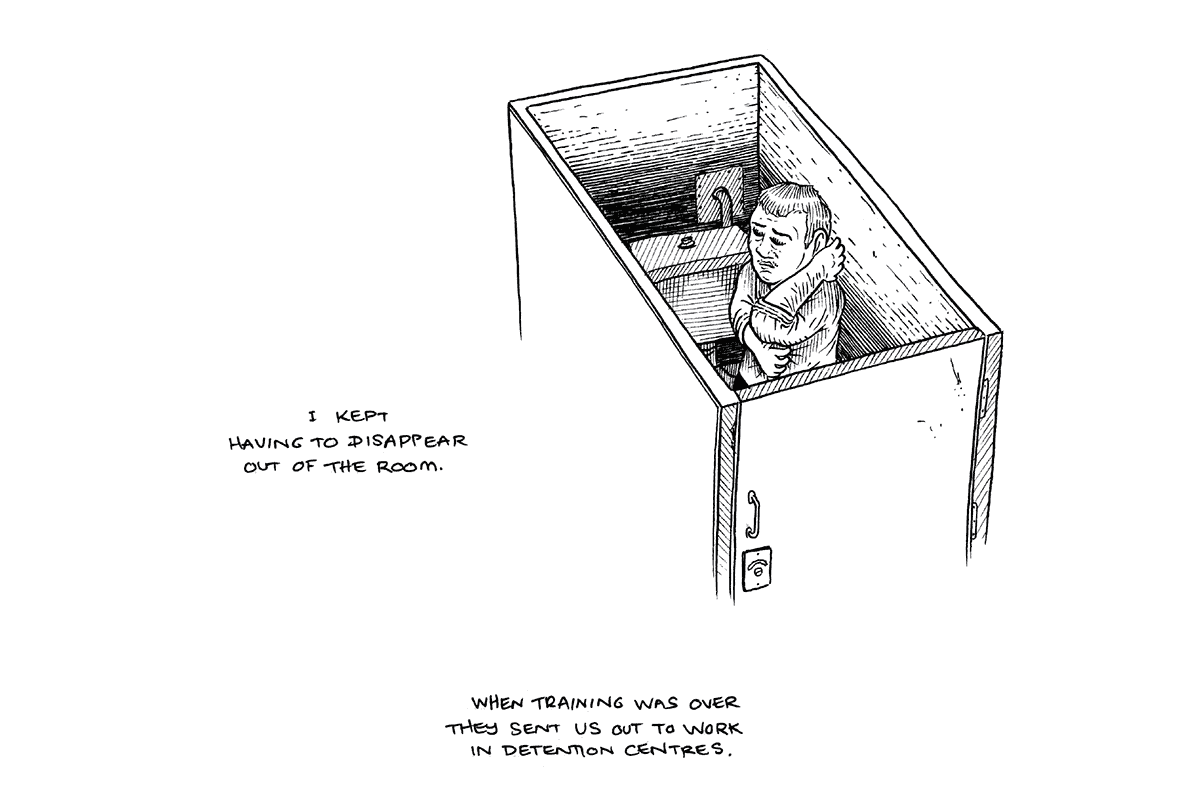 I KEPT
HAVING TO DISAPPEAR
OUT OF THE ROOM.
WHEN TRAINING WAS OVER
THEY SENT US OUT TO WORK
IN DETENTION CENTRES.